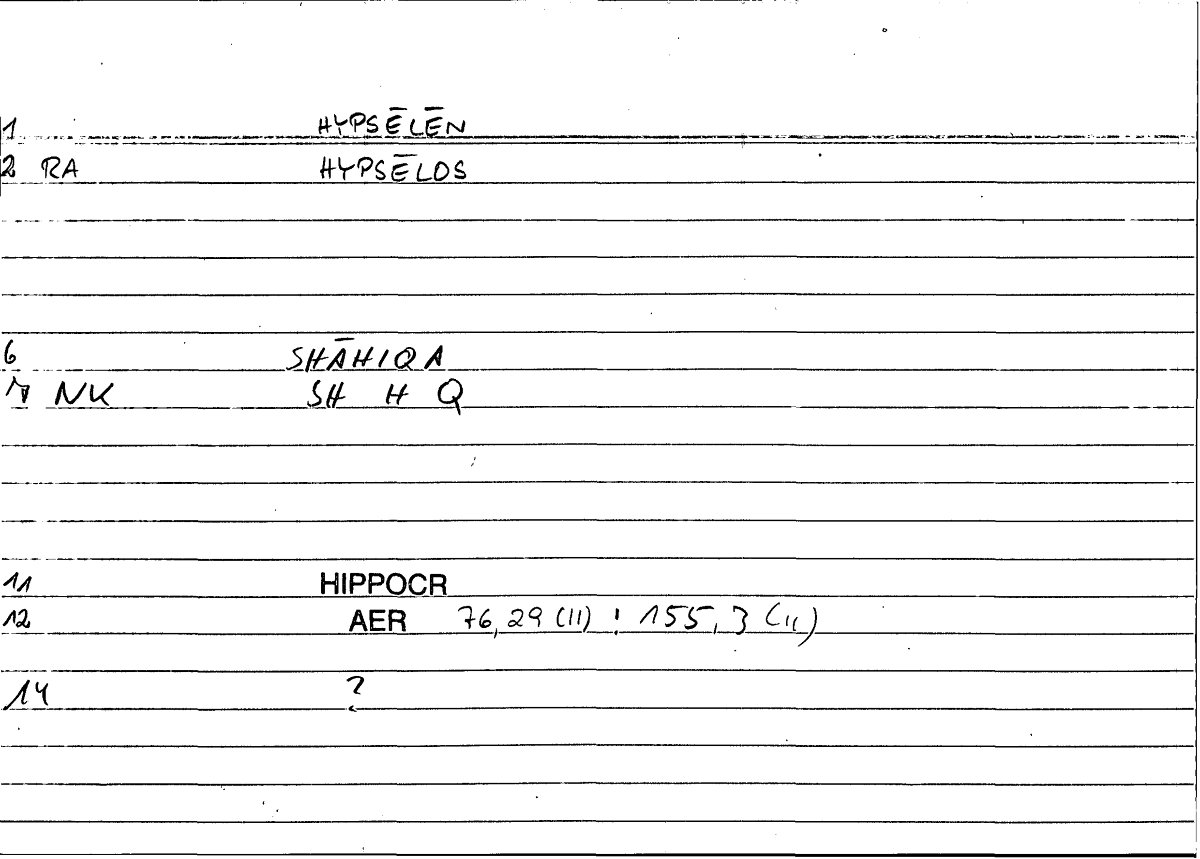 1 HYPSĒLĒN
2 RA HYPSĒLOS
6 SHĀHIQA
7 NK SH H Q
11 HIPPOCR
12 AER 76,29 (11) : 155,3 (11)
14 ?